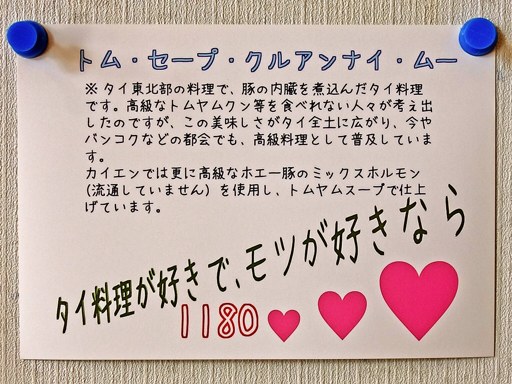 トム・セーブ・クルアンナイ・ムー
※ タイ東北部の料理で、豚の内臓を煮込んだタイ料理
です。高級なトムヤムクン等を食べれない人々が考え出
したのですが、この美味しさがタイ全土に広がり、今や
バンコクなどの都会でも、高級料理として普及していま
す。
カイエンでは更に高級なホエー豚のミックスホルモン
(流通していません) を使用し、トムヤムスープで仕上
げています。
タイ料理が好きで、モツが好きなら
1180